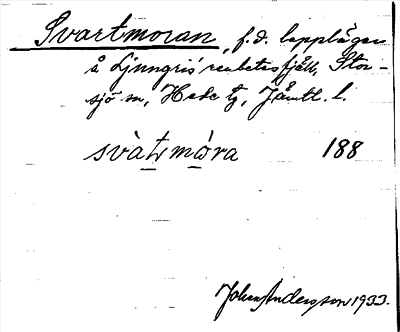 Svartmoran, f.d. lappläger
å Ljungris renbetesfjäll, Stor-
sjö sn, Hede tg, Jämtl. l.
svàtmóra 188
John Andersson 1933.